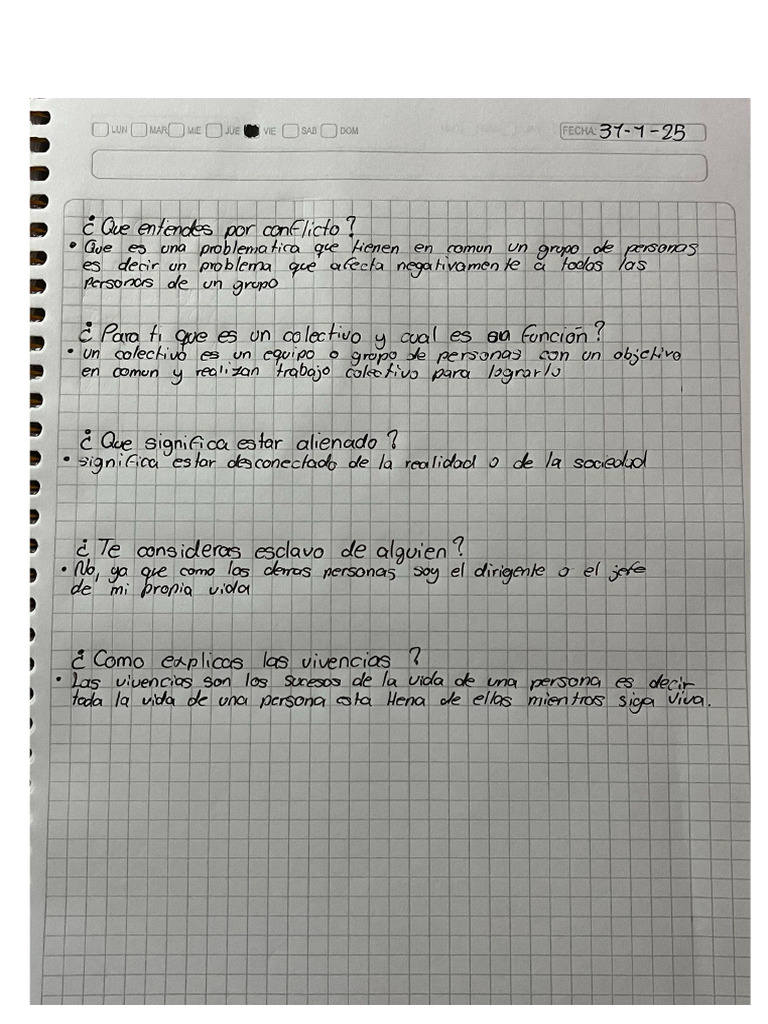 LUN MAR MIE JUE VIE SAB DOM FECHA: 31-1-25
¿Que entendes por conflicto?
• Que es una problematica que tienen en comun un grupo de personas
es decir un problema que afecta negativamente a todas las
personas de un grupo
¿Para ti que es un colectivo y cual es su función?
• un colectivo es un equipo o grupo de personas con un objetivo
en comun y realizan trabajo colectivo para lograrlo
¿Que significa estar alienado?
• significa estar desconectado de la realidad o de la sociedad
¿Te consideras esclavo de alguien?
• No, ya que como las demas personas soy el dirigente o el jefe
de mi propia vida
¿Como explicas las vivencias?
• Las vivencias son los sucesos de la vida de una persona es decir
toda la vida de una persona esta llena de ellas mientras siga viva.